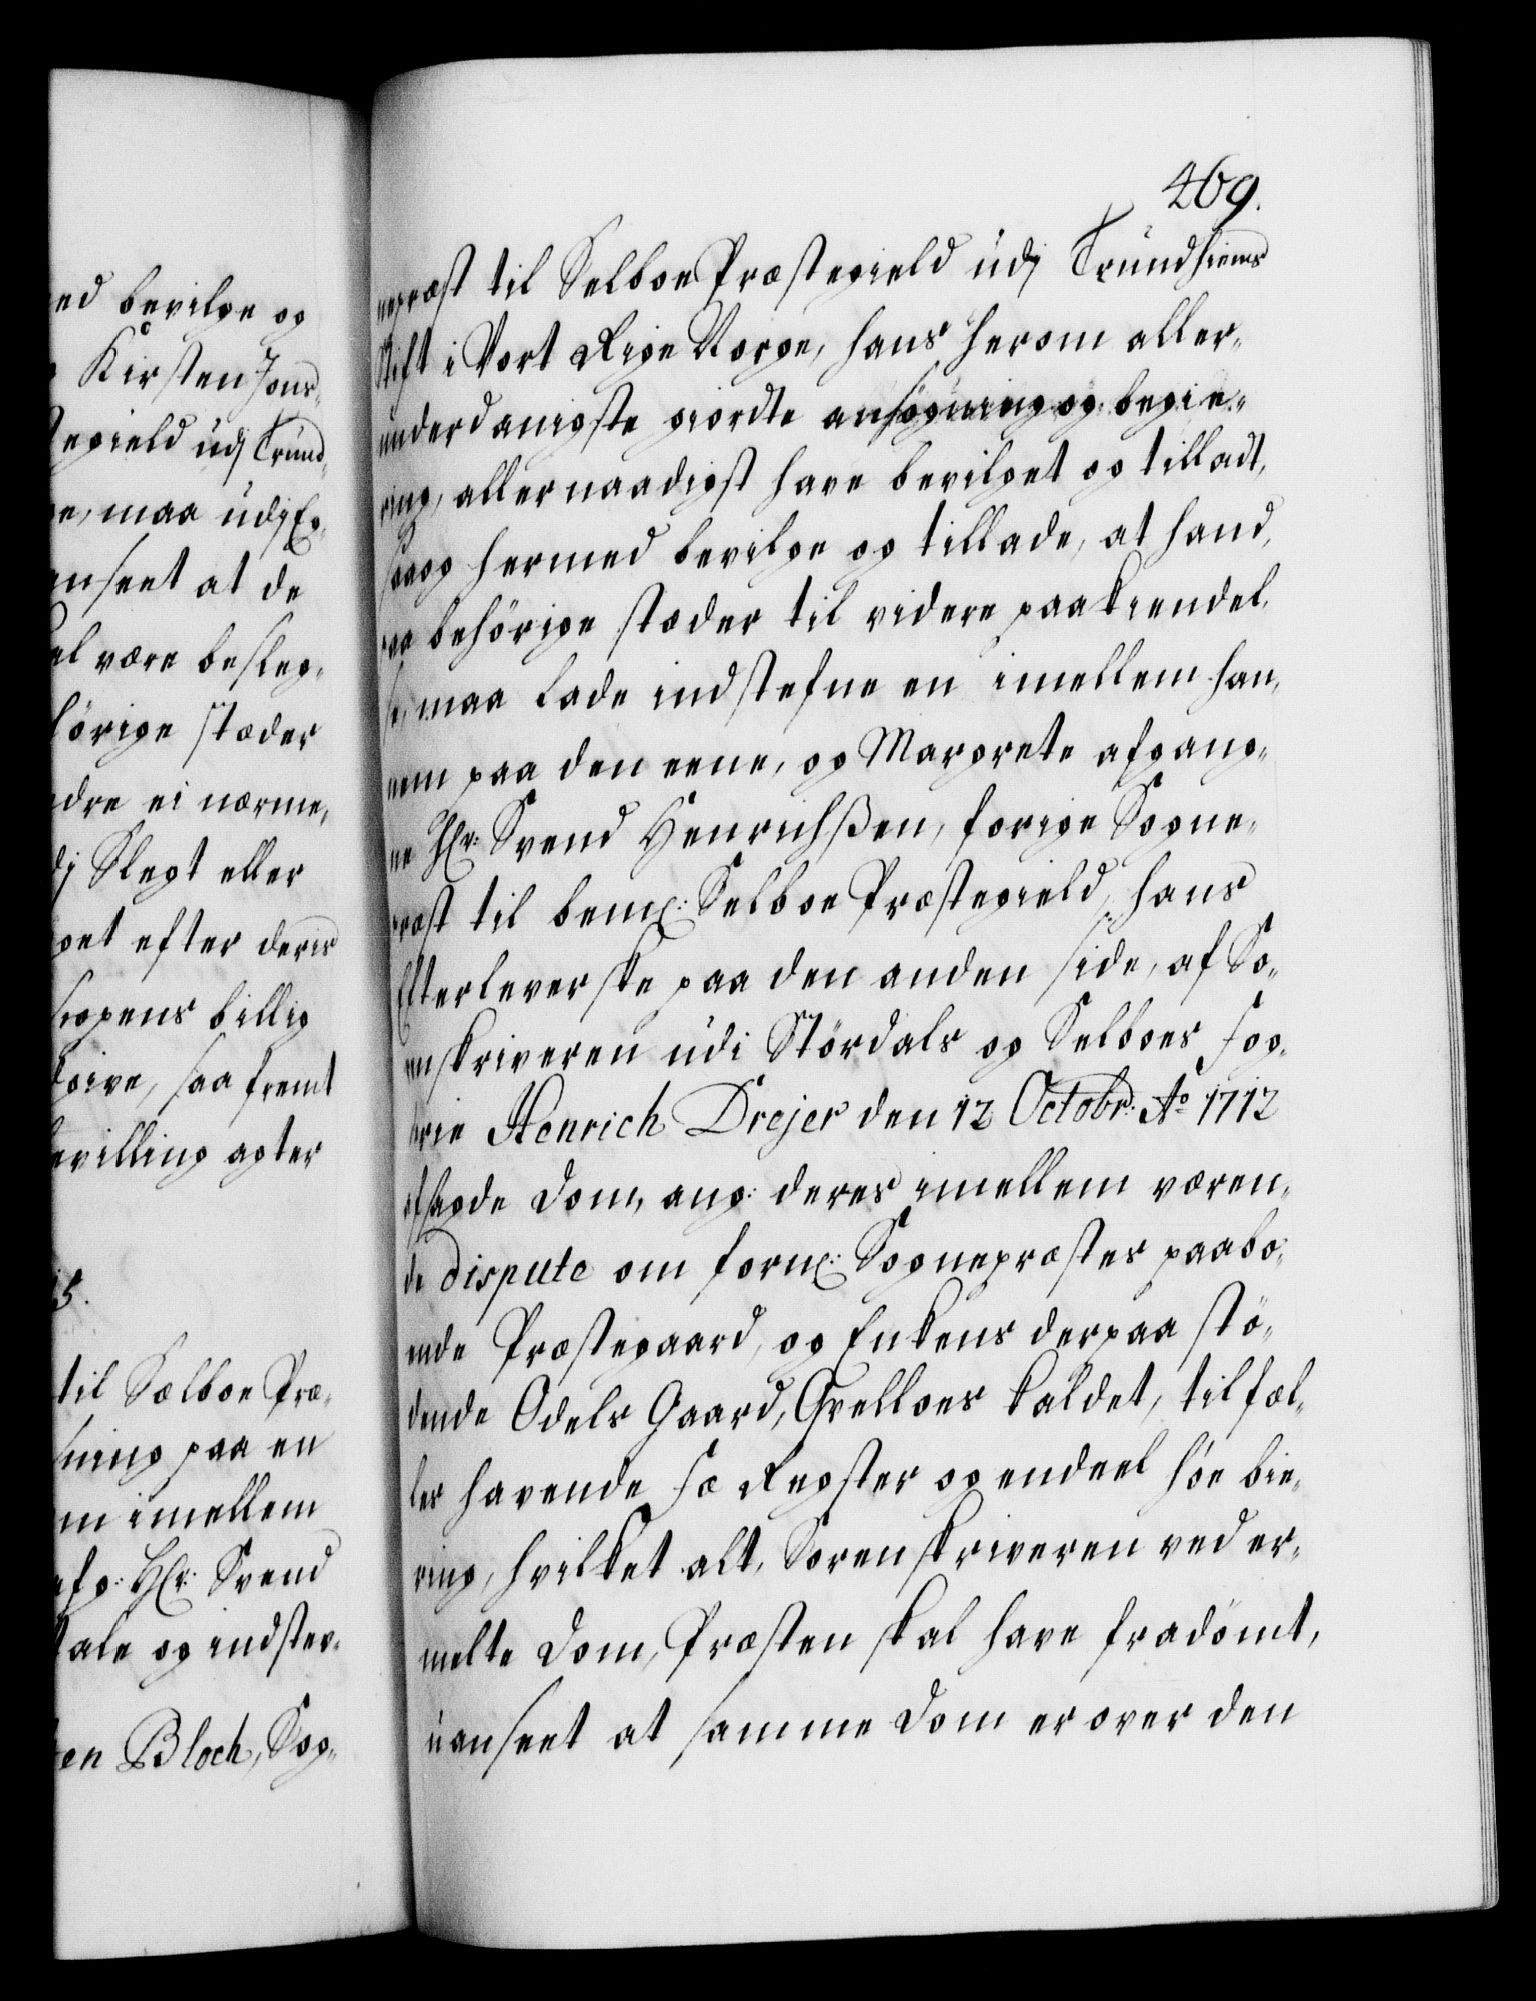 ed bevilge og
Kirsten Jons-
egield udj Trund-
e, maa udj Eg-
anseet at de
el være besleg-
hörige stæder
dre ei nærme,
dj Slegt eller
get efter deris
ogens billig
give, saa fremt
evilling agter
5.
til Sælboe Præ-
ning paa en
m imellem
afg: Hr: Svend
tale og indstev-
en Bloch, Sog-
469.
nepræst til Selboe Præstegield udj Trundhiems
Stift i Vort Rige Norge, hans herom aller-
underdanigste giordte ansögning og begie-
ring, allernaadigst have bevilget og tilladt,
saaog hermed bevilge og tillade, at hand,
paa behörige stæder til videre paakiendel-
se, maa lade indstefne en imellem han,
nem paa den eene, og Margrete afgang-
ne Hr: Svend Henrichßen, forige Sogne-
præst til bem: Selboe Præstegield, hans
Efterleverske paa den anden side, af So-
renskriveren udi Stördals og Selboes fog-
derie Henrich Drejer den 12 Octobr: Ao 1712
afsagde Dom, ang: deres imellem væren-
de dispute om form: Sognepræstes paabo-
ende Præstegaard, og Enkens derpaa stö-
dende Odels Gaard, Qvelloes kaldet, tilfæl-
les havende fæ Regster og endeel höe bie-
ring, hvilket alt, Sorenskriveren ved er-
melte Dom, Præsten skal have fradömt,
uanseet at samme Dom er over den